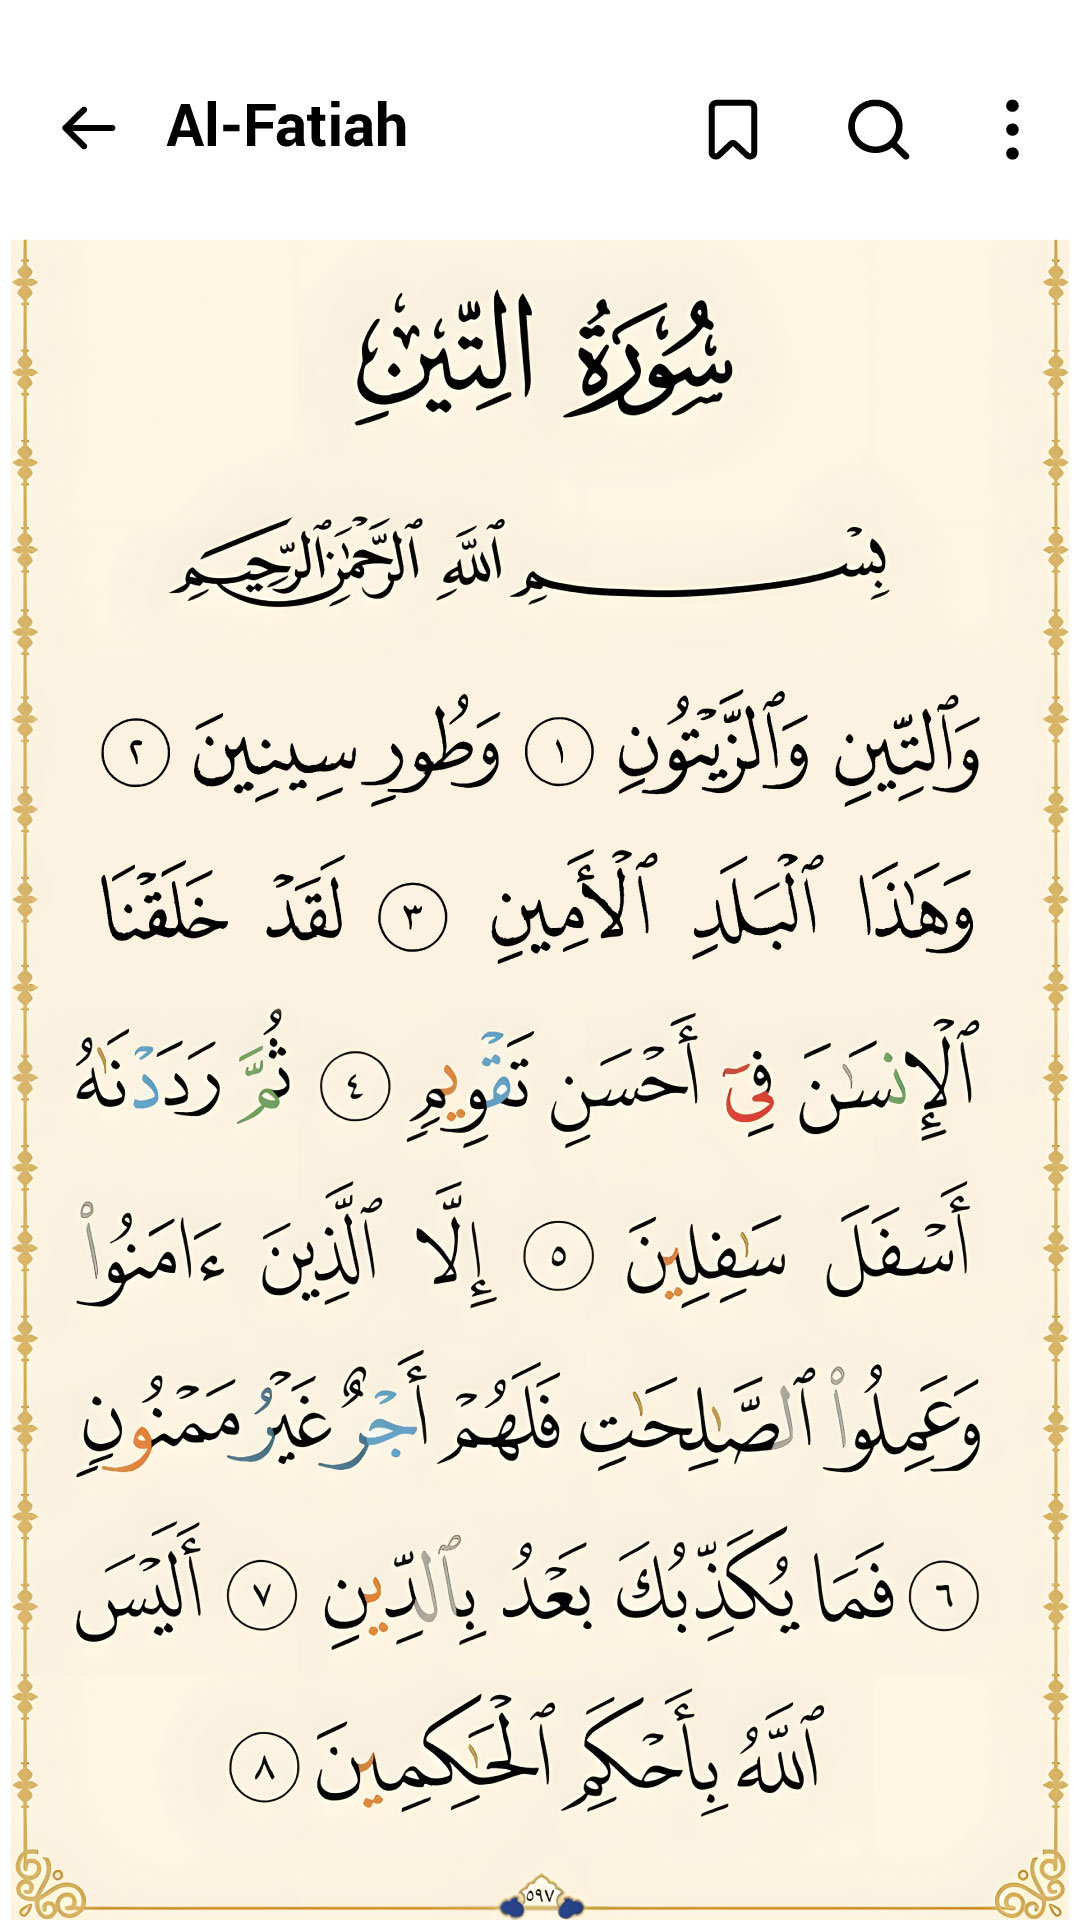 Al-Fatiah
سُوْرَةُ التِّيْنِ
بِسْمِ ٱللَّهِ ٱلرَّحْمَٰنِ ٱلرَّحِيمِ
وَٱلتِّينِ وَٱلزَّيْتُونِ ١ وَطُورِ سِينِينَ ٢
وَهَٰذَا ٱلْبَلَدِ ٱلْأَمِينِ ٣ لَقَدْ خَلَقْنَا
ٱلْإِنسَٰنَ فِىٓ أَحْسَنِ تَقْوِيمٍ ٤ ثُمَّ رَدَدْنَٰهُ
أَسْفَلَ سَٰفِلِينَ ٥ إِلَّا ٱلَّذِينَ ءَامَنُوا۟
وَعَمِلُوا۟ ٱلصَّٰلِحَٰتِ فَلَهُمْ أَجْرٌ غَيْرُ مَمْنُونٍ
٦ فَمَا يُكَذِّبُكَ بَعْدُ بِٱلدِّينِ ٧ أَلَيْسَ
ٱللَّهُ بِأَحْكَمِ ٱلْحَٰكِمِينَ ٨
٥٩٧